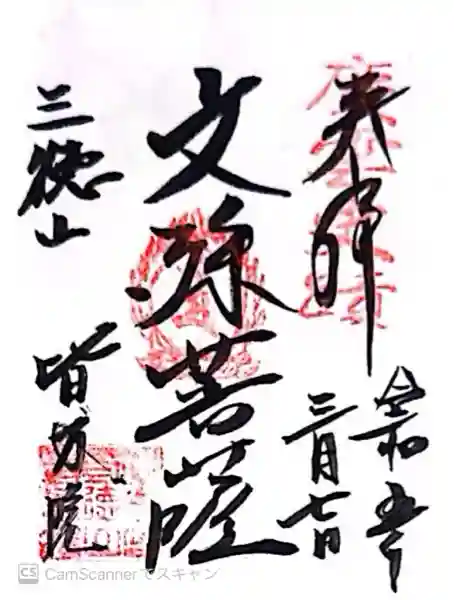 奉拝
令和五年
三月七日
文殊菩薩
三徳山
皆成院
CS CamScannerでスキャン